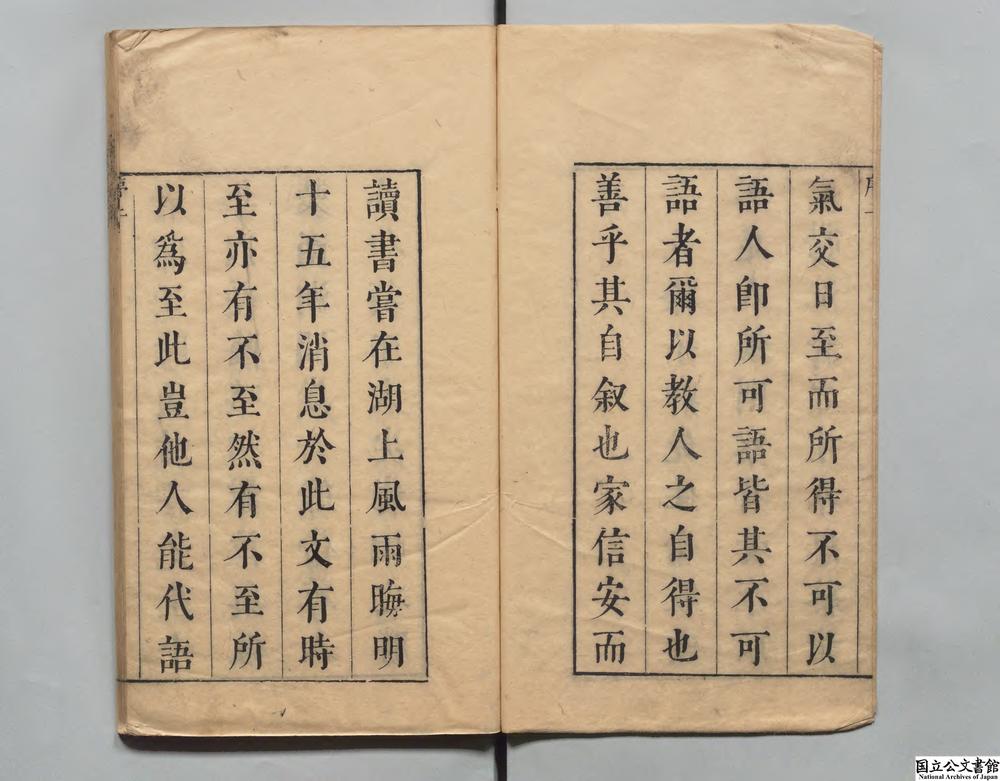 氣交日至而所得不可以
語人卽所可語皆其不可
語者爾以教人之自得也
善乎其自叙也家信安而
讀書嘗在湖上風雨晦明
十五年消息於此文有時
至亦有不至然有不至所
以爲至此豈他人能代語
国立公文書館
National Archives of Japan